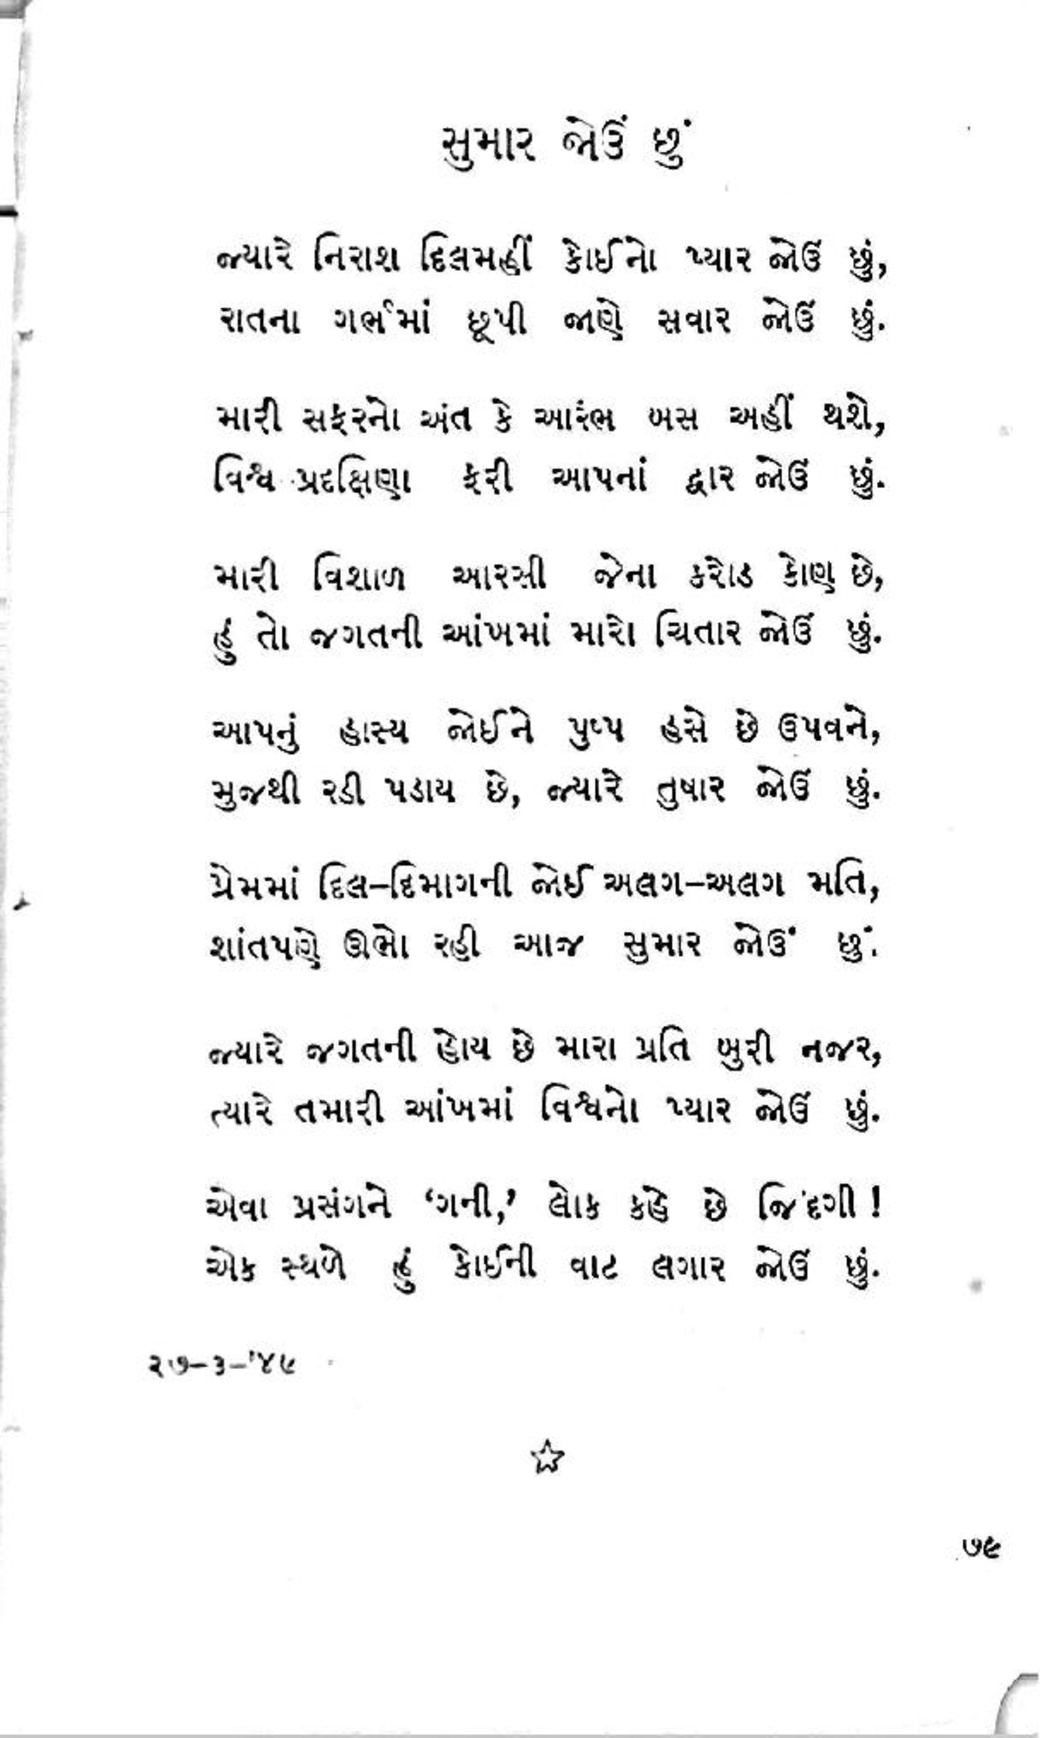 સુમાર જોઉં છું
જ્યારે નિરાશ દિલમહીં કોઈનો પ્યાર જોઉં છું,
રાતના ગર્ભમાં છૂપી જાણે સવાર જોઉં છું.
મારી સફરનો અંત કે આરંભ બસ અહીં થશે,
વિશ્વ પ્રદક્ષિણા ફરી આપનાં દ્વાર જોઉં છું.
મારી વિશાળ આરસી જેના કરોડ કોણ છે,
હું તો જગતની આંખમાં મારો ચિતાર જોઉં છું.
આપનું હાસ્ય જોઈને પુષ્પ હસે છે ઉપવને,
મુજથી રડી પડાય છે, જ્યારે તુષાર જોઉં છું.
પ્રેમમાં દિલ–દિમાગની જોઈ અલગ–અલગ મતિ,
શાંતપણે ઊભો રહી આજ સુમાર જોઉં છું.
જ્યારે જગતની હોય છે મારા પ્રતિ બુરી નજર,
ત્યારે તમારી આંખમાં વિશ્વનો પ્યાર જોઉં છું.
એવા પ્રસંગને ‘ગની,’ લોક કહે છે જિંદગી !
એક સ્થળે હું કોઈની વાટ લગાર જોઉં છું.
૨૭–૩–'૪૯
૭૯